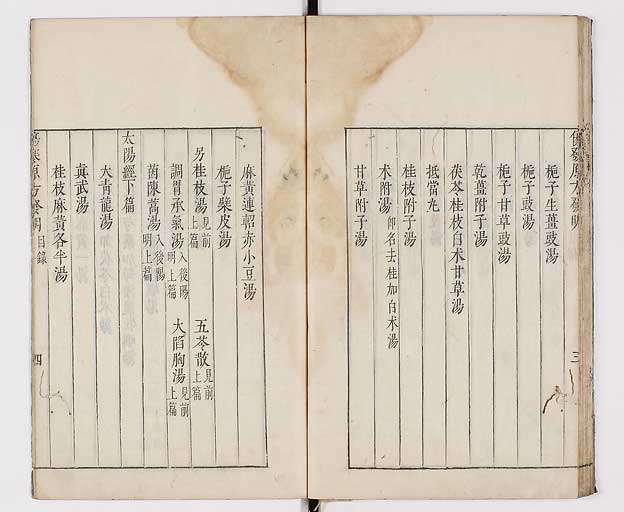 三
梔子生薑豉湯
梔子豉湯
梔子甘草豉湯
乾薑附子湯
茯苓桂枝白术甘草湯
抵當丸
桂枝附子湯
术附湯 即名去桂加白术湯
甘草附子湯
麻黃連軺赤小豆湯
梔子檗皮湯
另桂枝湯 見前上篇 五苓散 見前上篇
調胃承氣湯 入後陽明上篇 大陷胸湯 見前上篇
茵陳蒿湯 入後陽明上篇
太陽經下篇
大青龍湯
眞武湯
桂枝麻黃各半湯
目錄 四